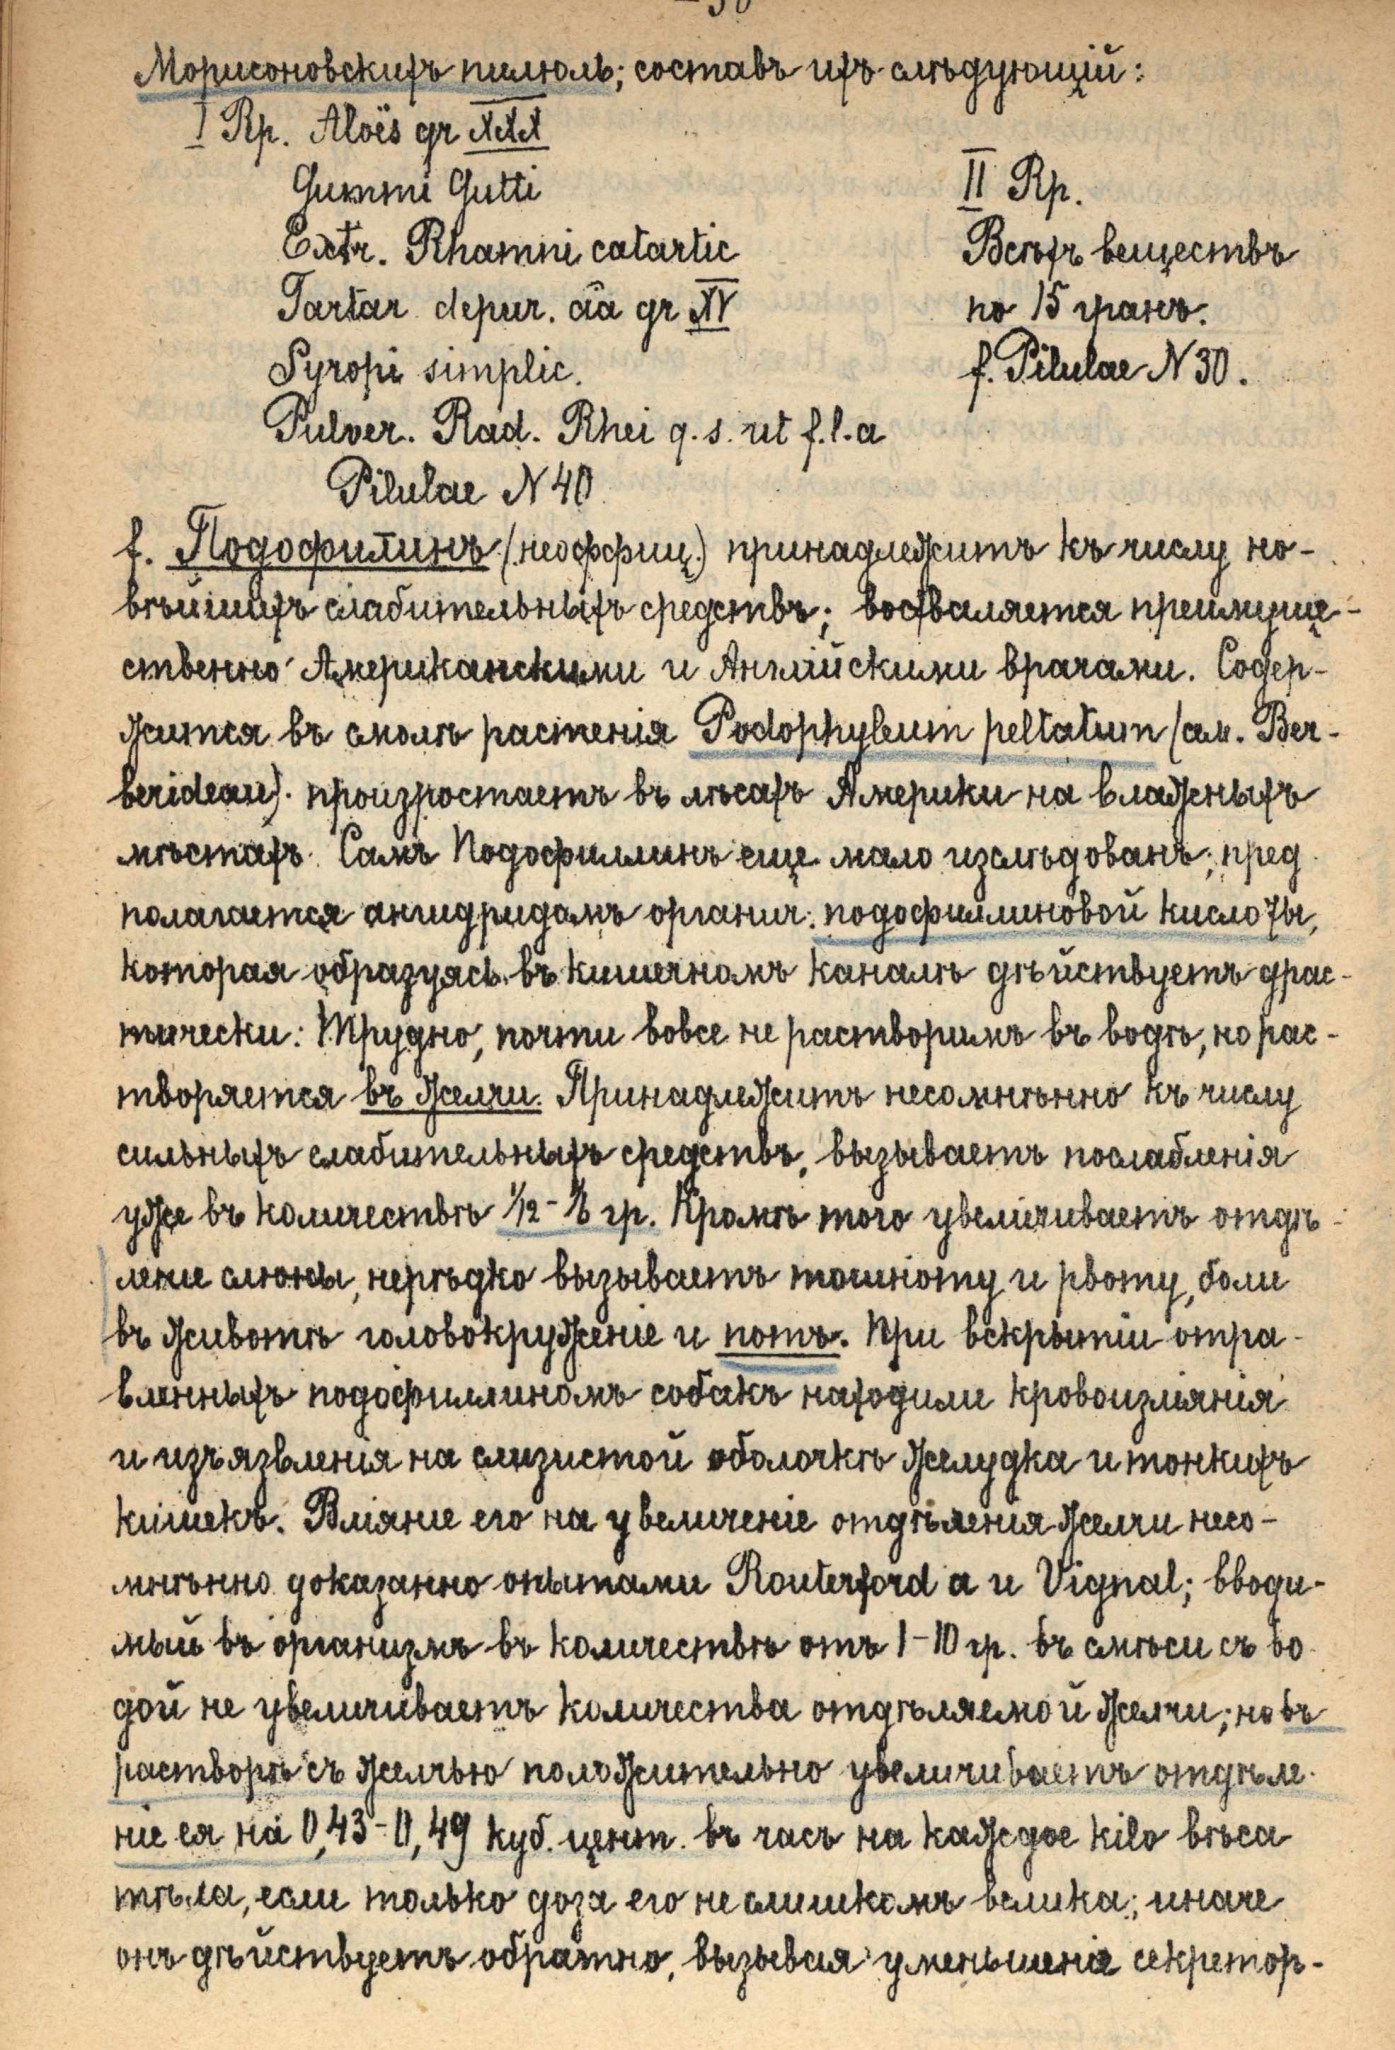 Морисоновскихъ пилюль; составъ ихъ слѣдующій:
I Rp. Aloës gr XXX
Gummi Gutti
Extr. Rhamni catartic
Tartar depur. āā gr XV
Syropi simplic.
Pulver. Rad. Rhei q. s. ut f. l. a
Pilulae N 40
II Rp.
Всѣхъ веществъ
по 15 гранъ.
f. Pilulae N 30.
f. Подофилинъ (неоффиц.) принадлежитъ къ числу но-
вѣйшихъ слабительныхъ средствъ; восхваляется преимуще-
ственно Американскими и Англійскими врачами. Содер-
жится въ смолѣ растенія Podophyleum peltatum (см. Ber-
berideau). произростаетъ въ лѣсахъ Америки на влажныхъ
мѣстахъ. Самъ Подофиллинъ еще мало изслѣдованъ; пред
полагается ангидридомъ органич. подофиллиновой кислоты,
которая образуясь въ кишечномъ каналѣ дѣйствуетъ драс-
тически: Трудно, почти вовсе не растворимъ въ водѣ, но рас-
творяется въ желчи. Принадлежитъ несомнѣнно къ числу
сильныхъ слабительныхъ средствъ, вызываетъ послабленія
уже въ количествѣ 1/12 - 1/6 гр. Кромѣ того увеличиваетъ отдѣ-
леніе слюны, нерѣдко вызываетъ тошноту и рвоту, боли
въ животѣ головокруженіе и потъ. При вскрытіи отра-
вленныхъ подофиллиномъ собакъ находили кровоизліянія
и изъязвленія на слизистой оболочкѣ желудка и тонкихъ
кишекъ. Вліяніе его на увеличеніе отдѣленія желчи несо-
мнѣнно доказанно опытами Routerford а и Vignal; вводи-
мый въ организмъ въ количествѣ отъ 1-10 гр. въ смѣси съ во
дой не увеличиваетъ количества отдѣляемой желчи; но въ
растворѣ съ желчью положительно увеличиваетъ отдѣле-
ніе ея на 0,43-0,49 куб. цент. въ часъ на каждое kilo вѣса
тѣла, если только доза его не слишкомъ велика; иначе
онъ дѣйствуетъ обратно, вызывая уменьшеніе секретор-